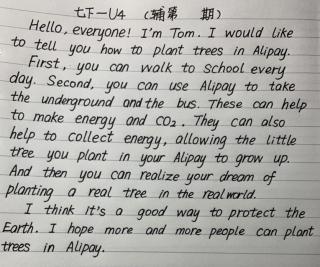 七下一U4 (辅第 期)
Hello, everyone! I'm Tom. I would like
to tell you how to plant trees in Alipay.
First, you can walk to school every
day. Second, you can use Alipay to take
the underground and the bus. These can help
to make energy and CO₂. They can also
help to collect energy, allowing the little
tree you plant in your Alipay to grow up.
And then you can realize your dream of
planting a real tree in the real world.
I think it's a good way to protect the
Earth. I hope more and more people can plant
trees in Alipay.